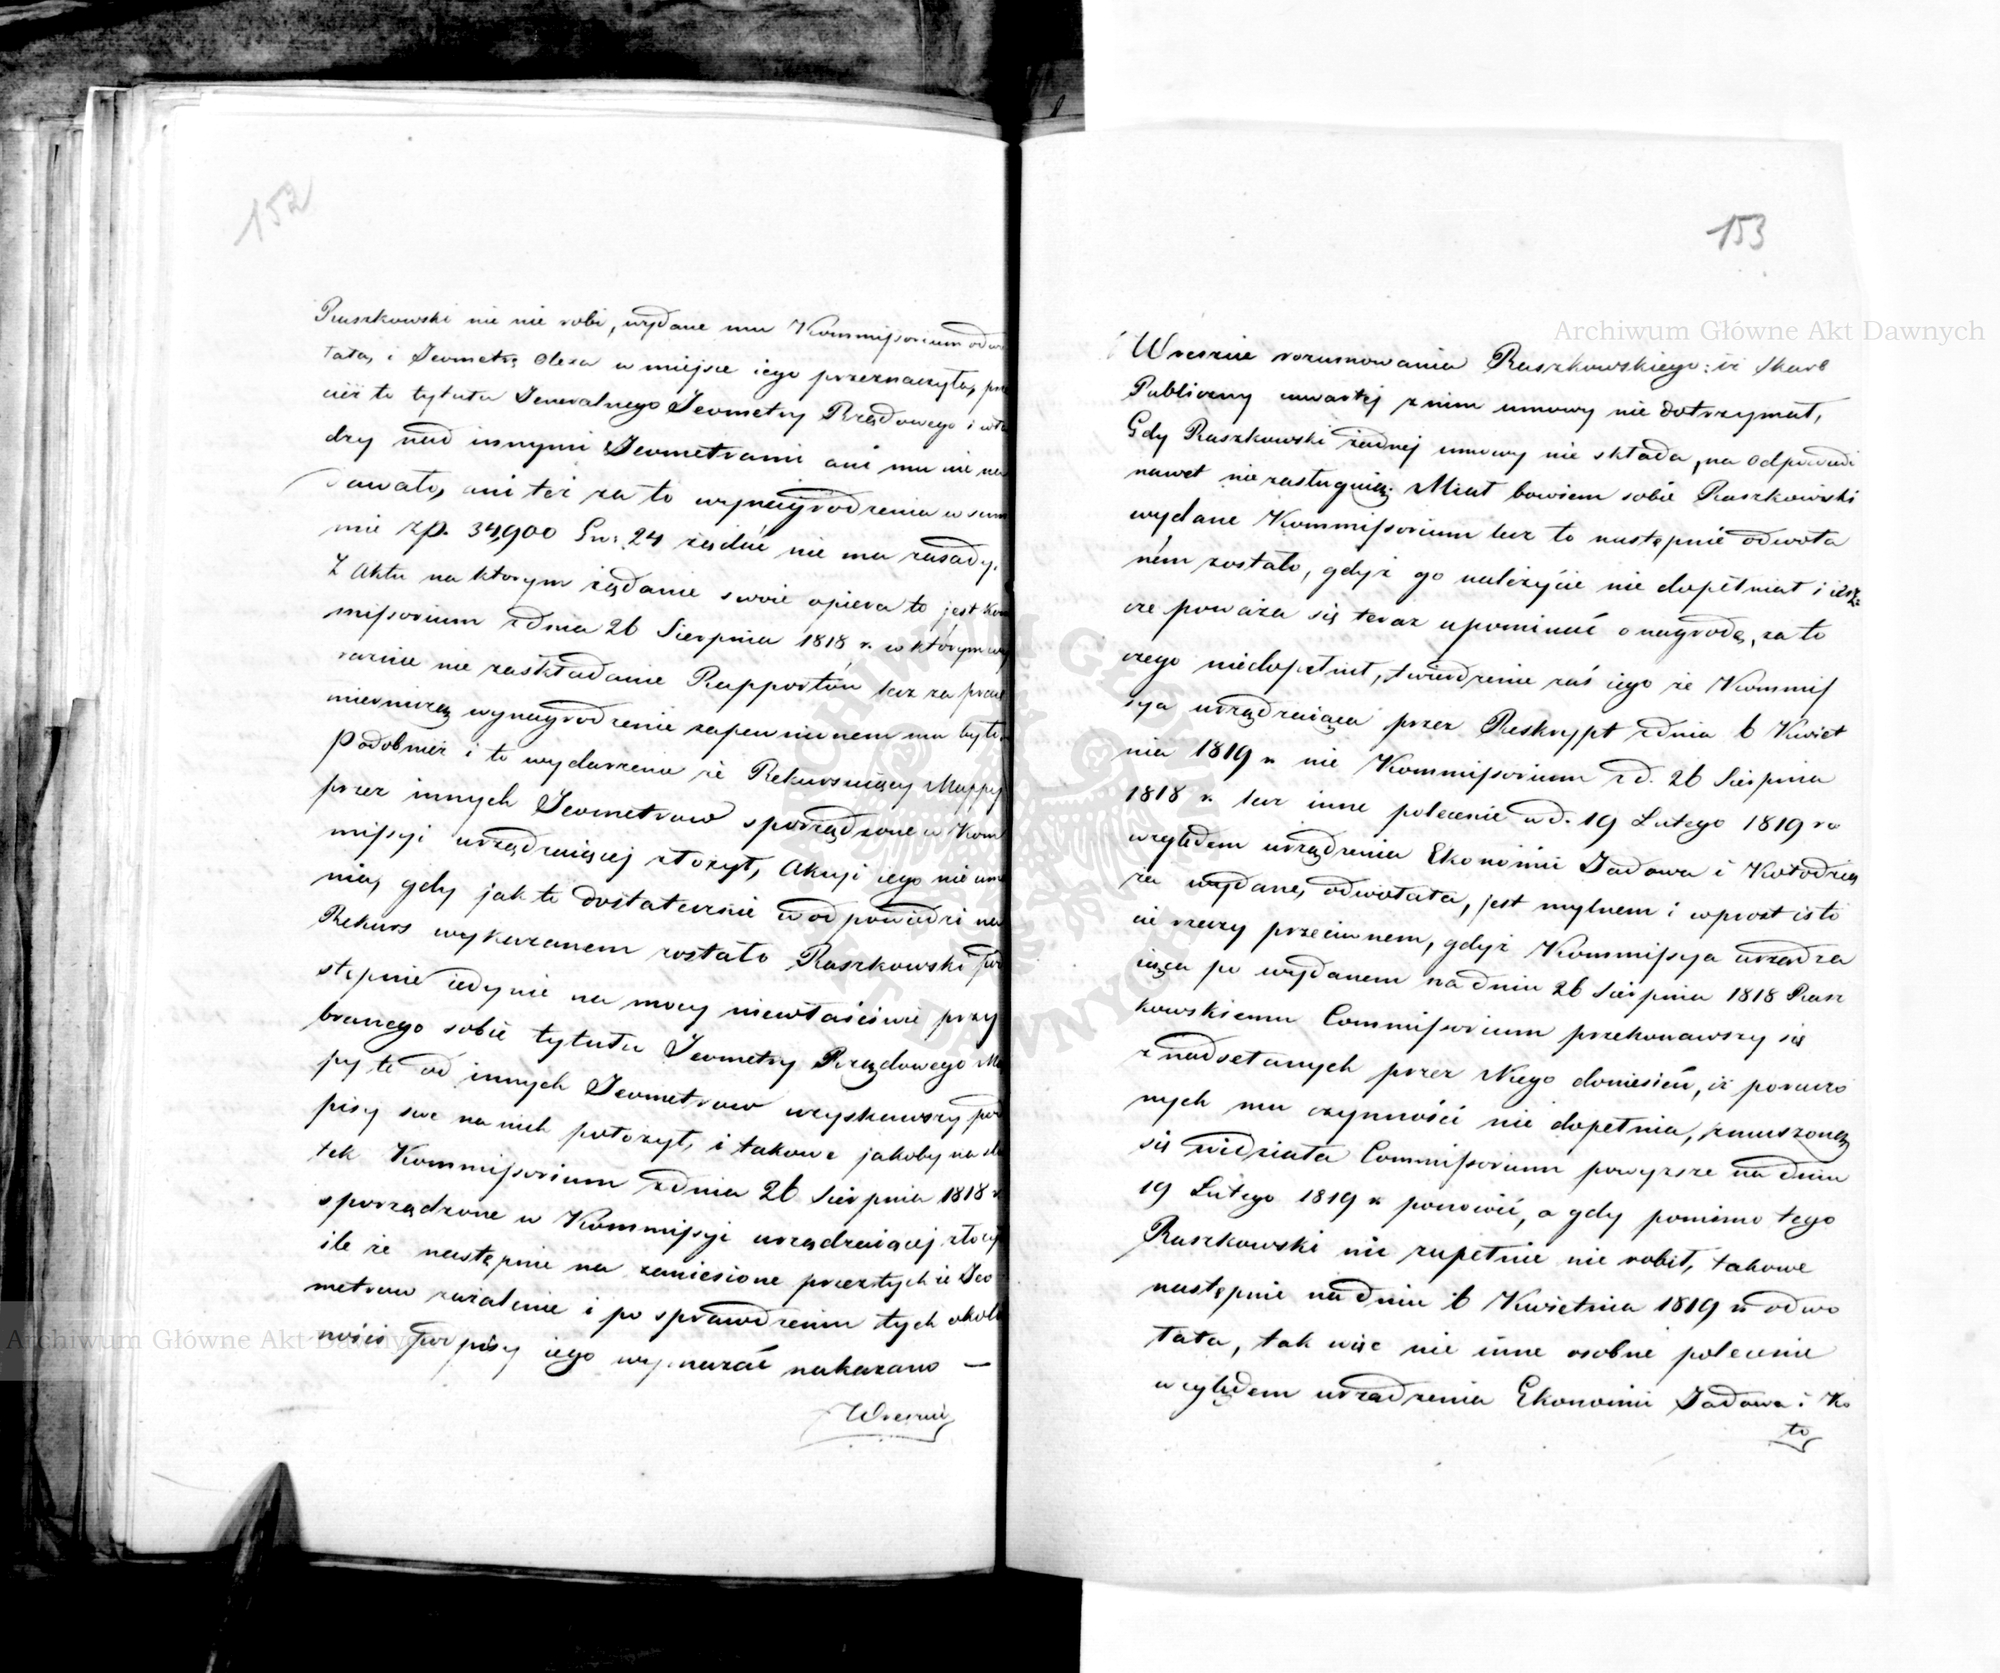 152
Raszkowski nic nie robi, wydane mu Kommissorium odwo
łała, i Jeometrę Olexa w miejsce iego przeznaczyła, prze
cież to tytułu Jeneralnego Jeometry Rządowego i wła
dzy nad innymi Jeometrami ani mu nie na
dawało, ani też za to wynagrodzenia w sum
mie zp. 34,900 Gr: 24 żądać nie ma zasady.
Z Aktu na ktorym żądanie swoie opiera to jest Kom
missorium z dnia 26 Sierpnia 1818 r. w którym wy
raznie nie za składanie Rapportów lecz za prace
mierniczą wynagrodzenie zapewnionem mu było
Podobnież i to wydarzenie że Rekursuiący Mappy
przez innych Jeometrow sporządzone w Kom
missyi urządzaiącej złożył, Akcyi iego nie um
nia, gdy jak to dostatecznie w odpowiedzi na
Rekurs wykazanem zostało Raszkowski pod
stępnie iedynie na mocy niewłaściwie przy
branego sobie tytułu Jeometry Rządowego Ma
py te od innych Jeometrow uzyskawszy pod
pisy swe na nich położył, i takowe jakoby na sku
tek Kommissorium z dnia 26 Sierpnia 1818 r.
sporządzone w Kommissyi urządzaiącej złożył
ile że następnie na zaniesione przez tychże Jeo
metrow zażalenie i po sprawdzeniu tych okolicz
ności podpisy iego wymazać nakazano —
Wreszcie
153
Wreszcie rozumowania Raszkowskiego: iż Skarb
Publiczny zawartej z nim umowy nie dotrzymał,
Gdy Raszkowski żadnej umowy nie składa, na odpowiedź
nawet nie zasługuią. Miał bowiem sobie Raszkowski
wydane Kommissorium lecz to następnie odwoła
nem zostało, gdyż go należycie nie dopełniał i iesz
cze poważa się teraz upominać o nagrodę, za to
czego niedopełnił, twierdzenie zaś iego że Kommis
sya urządzaiąca przez Reskrypt z dnia 6 Kwiet
nia 1819 r. nie Kommissorium z d. 26 Sierpnia
1818 r. lecz inne polecenie z d. 19 Lutego 1819 ro
względem urządzenia Ekonomii Jadowa i Kołodzią
ża wydane, odwołała, jest mylnem i wprost isto
cie rzeczy przeciwnem, gdyż Kommissya urządza
iąca po wydanem na dniu 26 Sierpnia 1818 Rasz
kowskiemu Commissorium przekonawszy się
z nadsełanych przez Niego doniesień, iż poruczo
nych mu czynności nie dopełnia, zmuszoną
się widziała Commissorium powyższe na dniu
19 Lutego 1819 r. ponowić, a gdy pomimo tego
Raszkowski nic zupełnie nie robił, takowe
następnie na dniu 6 Kwietnia 1819 r. odwo
łała, tak więc nie inne osobne polecenie
względem urządzenia Ekonomii Jadowa i Ko
ło
Archiwum Główne Akt Dawnych
Archiwum Główne Akt Dawnych
ARCHIWUM GŁÓWNE AKT DAWNYCH